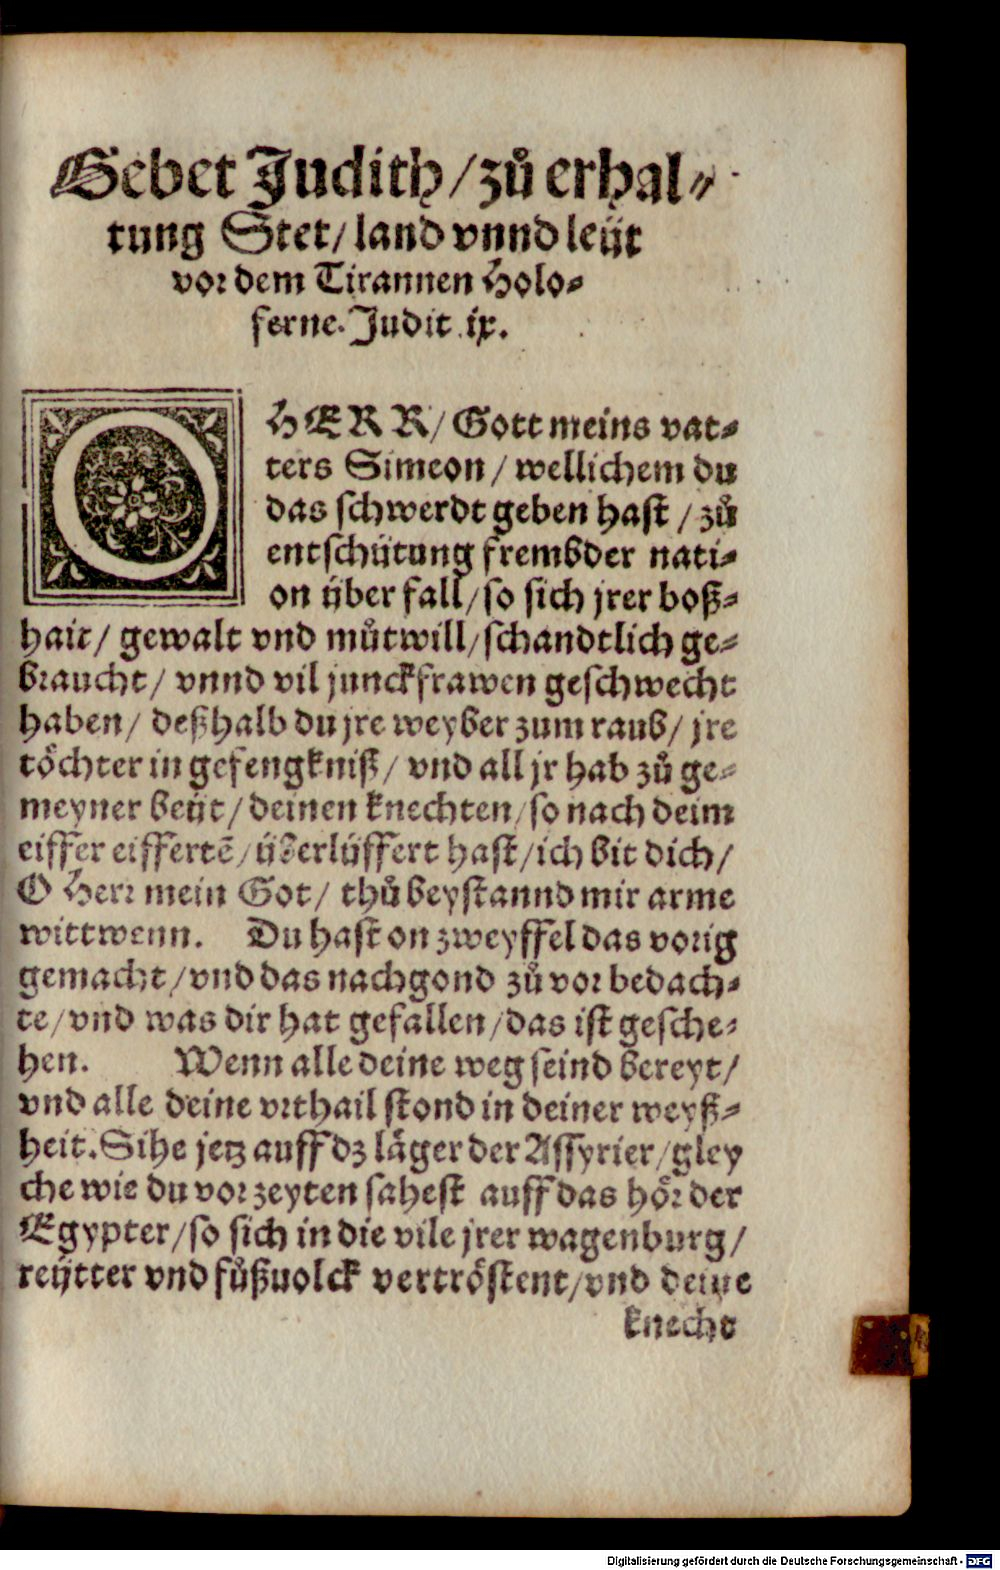 Gebet Judith/ zů erhal⸗
tung Stet/ land vnnd leüt
vor dem Tirannen Holo⸗
ferne. Judit .ix.
O HERR/ Gott meins vat⸗
ters Simeon/ wellichem du
das schwerdt geben hast/ zů
entschütung frembder nati⸗
on über fall/ so sich jrer boß⸗
hait/ gewalt vnd můtwill/ schandtlich ge⸗
braucht/ vnnd vil junckfrawen geschwecht
haben/ deßhalb du jre weyber zum raub/ jre
töchter in gefengkniß/ vnd all jr hab zů ge⸗
meyner beüt/ deinen knechten/ so nach deim
eiffer eiffertē/ überlüffert hast/ ich bit dich/
O Herr mein Got/ thů beystannd mir arme
wittwenn. Du hast on zweyffel das vorig
gemacht/ vnd das nachgond zů vor bedach⸗
te/ vnd was dir hat gefallen/ das ist gesche⸗
hen. Wenn alle deine weg seind bereyt/
vnd alle deine vrthail stond in deiner weyß⸗
heit. Sihe jetz auff dz läger der Assyrier/ gley
che wie du vor zeyten sahest auff das hör der
Egypter/ so sich in die vile jrer wagenburg/
reütter vnd fůßuolck vertröstent/ vnd deine
knecht
Digitalisierung gefördert durch die Deutsche Forschungsgemeinschaft - DFG